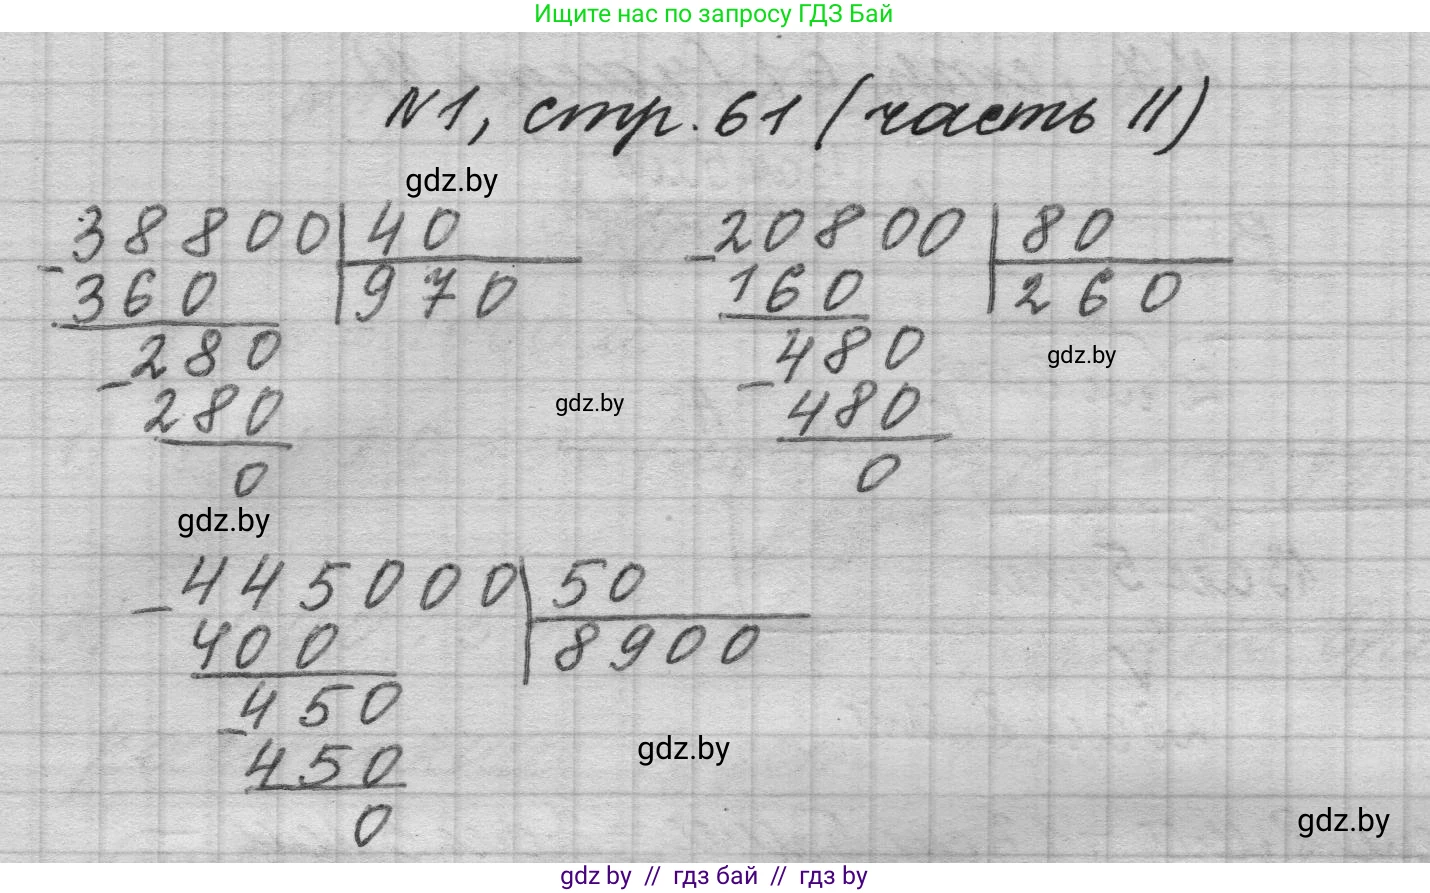 Ищите нас по запросу ГДЗ Бай
N1, стр. 61 (часть II)
gdz.by
38800 40
- 360 970
280
- 280
0
- 20800 80
160 260
480
- 480
0
gdz.by
gdz.by
gdz.by
- 445000 50
400 8900
450
- 450
0
gdz.by
gdz.by
gdz.by // гдз бай // гдз by